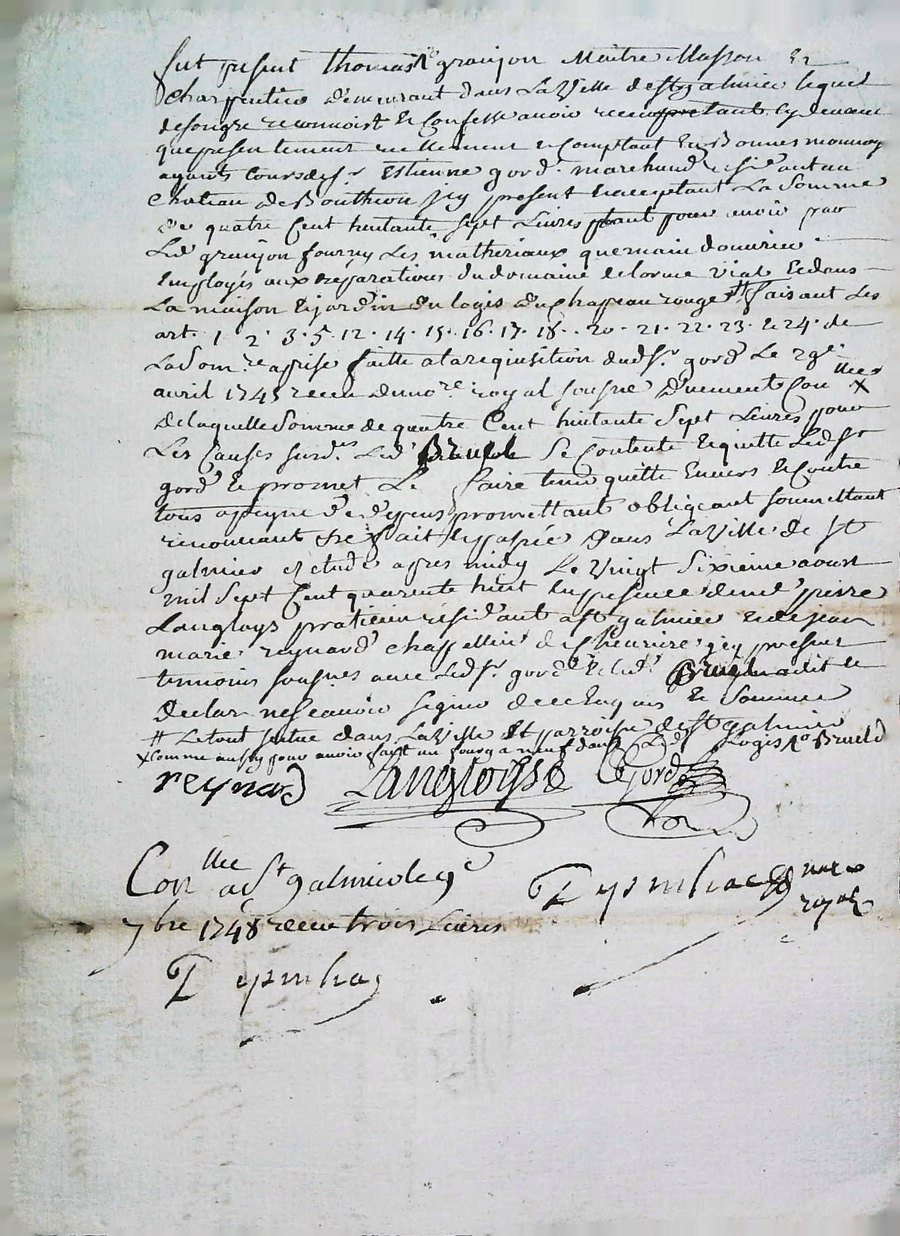 fut present thomas granjon Maitre Masson Et
charpentier demeurant dans La Ville de st galmier lequel
de son gre reconnoist et confesse avoir receu cy devant
que presentement reellement et comptant En Bonnes monnoy
ayants cours de sr Estienne gord marchand residant au
chateau de Boutheon icy present et acceptant La Somme
de quatre Cent huitante sept Livres pour avoir par
Led granjon fourny Les matheriaux que main douvrier
Employés aux reparations du domaine de lorme viat et dans
La maison et jardin du logis du chapeau rouge # faisant Les
art. 1. 2. 3. 5. 12. 14. 15. 16. 17. 18. 20. 21. 22. 23. et 24. de
La Somre aprise faitte a la requisition dud sr. gord Le 29e
avril 1745 receu du nore royal sousné duement Conllée X
de laquelle Somme de quatre Cent huitante Sept Livres pour
Les Causes surdes Led Bruel Se Contente et quitte Led sr
gord et promet Le faire tenir quitte Envers et Contre
tous a peyne de depens promettant obligeant soumettant
renonceant &c fait et passé dans La Ville de st
galmier Etude apres midy Le Vingt Sixieme aoust
mil Sept Cent quarente huit En presence de me pierre
Langloys praticien residant a st galmier et de jean
marie reynard chappellier de st heurize icy present
temoins sousnes avec Led sr. gord et Led. Bruel a dit et
declar ne scavoir signer de ce Enquis Et Somme
# Le tout situé dans La Ville Et parroisse de st galmier
X Comme aussy pour avoir fait un fourg a neuf dans Led Logis Bruel
reynard Langloysse Gord
Conllée a st galmier le 9e
7bre 1748 receu trois Livres
nore
royal